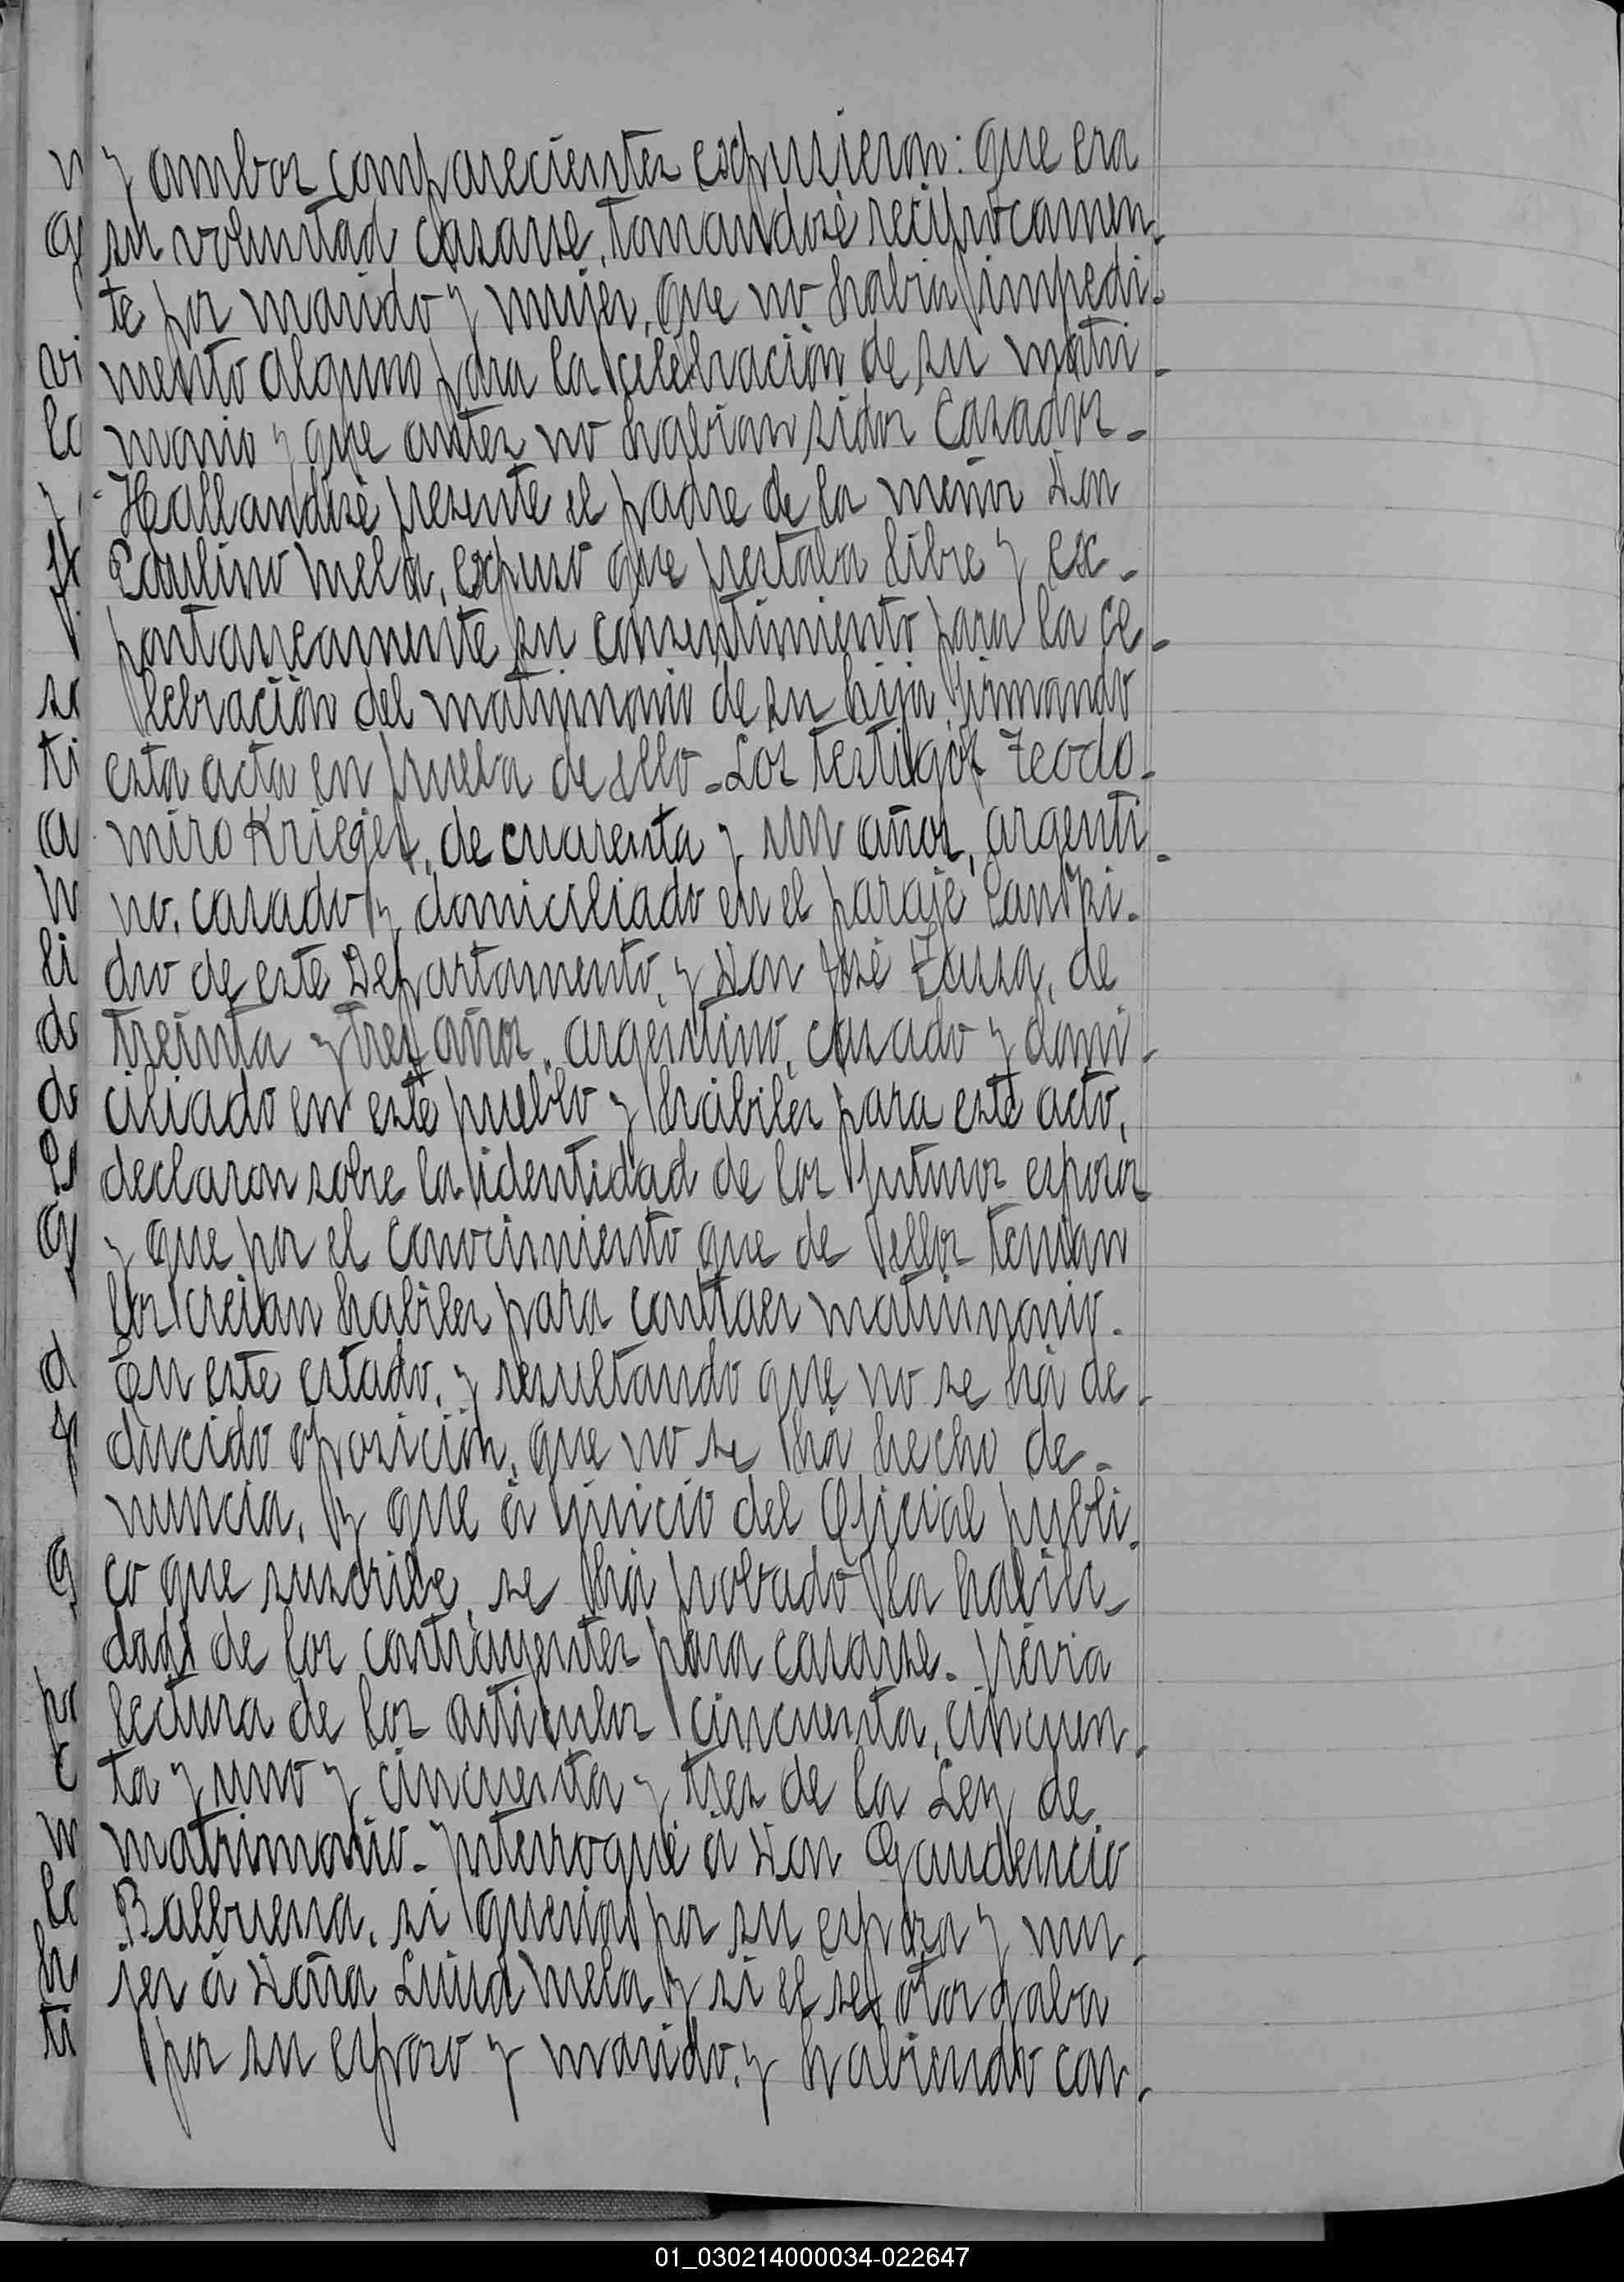 y ambos comparecientes expusieron: que era
su voluntad casarse, tomandosé reciprocamen-
te por marido y mujer, que no habia impedi-
mento alguno para la celebración de su matri-
monio y que antes no habian sidos casados-
Hallandosé presente el padre de la menor Don
Paulino Mela, expuso que prestaba libre y ex-
pontaneamente su consentimiento para la ce-
lebración del matrimonio de su hija firmando
esta acta en prueba de ello-Los testigos Teodo-
miro Krieger, de cuarenta y un años, argenti-
no, casado y domiciliado en el paraje
de este Departamento, y Don José de
treinta y tres años, argentino, casado y domi-
ciliado en este pueblo y hábiles para este acto,
declaron sobre la identidad de los futuros esposos
y que por el conocimiento que de ellos tenian
los creian habiles para contraer matrimonio.
En este estado, y resultando que no se há de-
ducido oposición, que no se há hecho de-
nuncia, y que á juicio del Oficial publi-
co que suscribe, se há probado la habili-
dad de los contrayentes para casarse. Prévia
lectura de los articulos cincuenta, cincuen-
ta y uno y cincuenta y tres de la Ley de
matrimonio-Interrogué á Don Gaudencio
Balbuena, si queria por su esposa y mu-
jer á Doña Luisa Mela y si el se otorgaba
por su esposo y marido, y habiendo con-
01_030214000034-022647